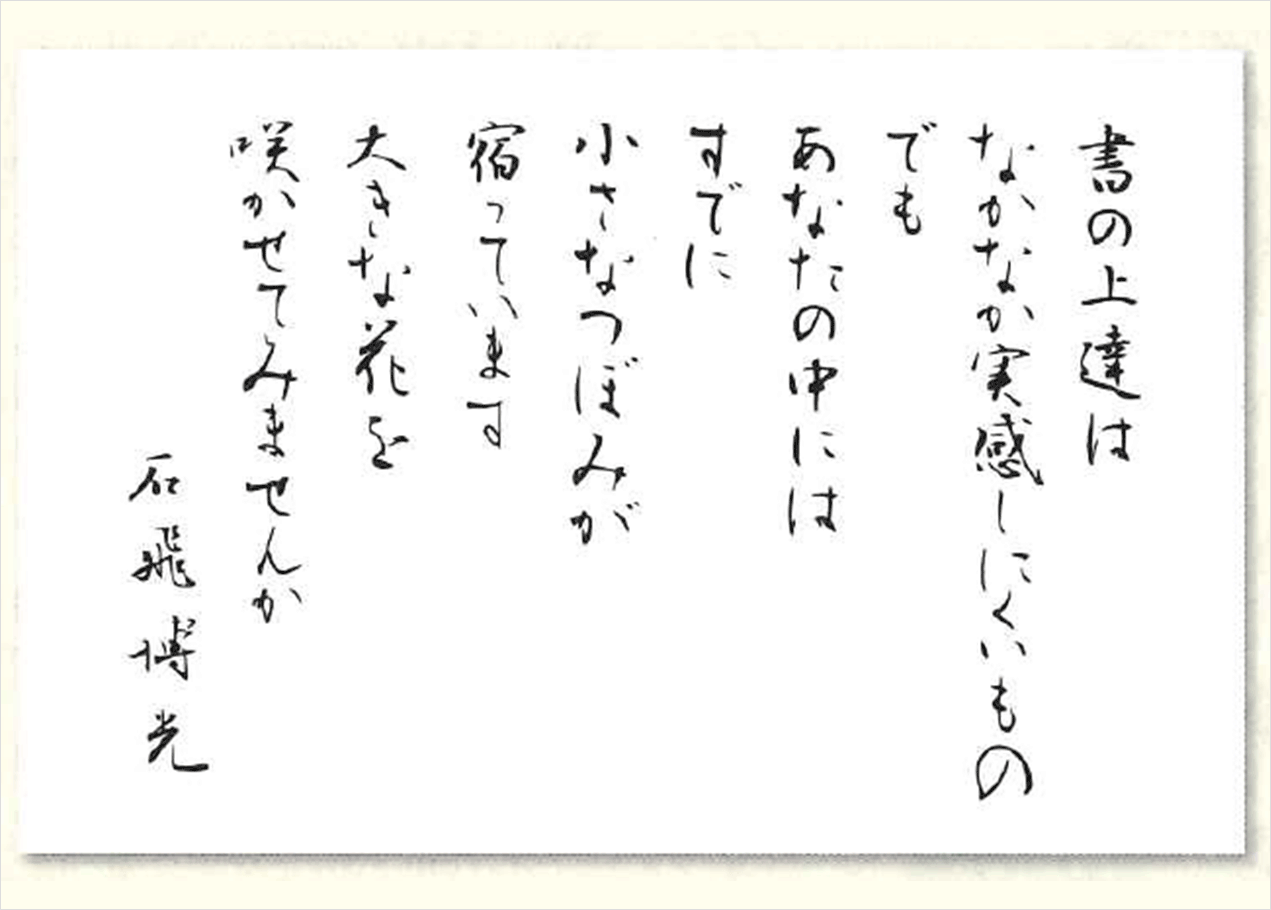 書の上達は
なかなか実感しにくいもの
でも
あなたの中には
すでに
小さなつぼみが
宿っています
大きな花を
咲かせてみませんか
石飛博光